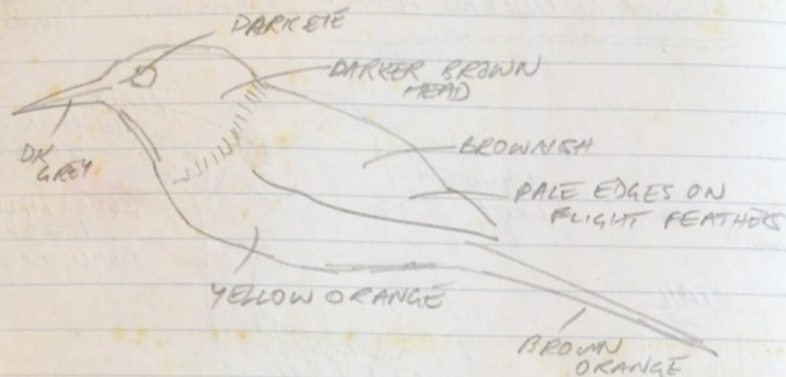 DARK EYE
DARKER BROWN
HEAD
DK
GREY
BROWNISH
PALE EDGES ON
FLIGHT FEATHERS
YELLOW ORANGE
BROWN
ORANGE